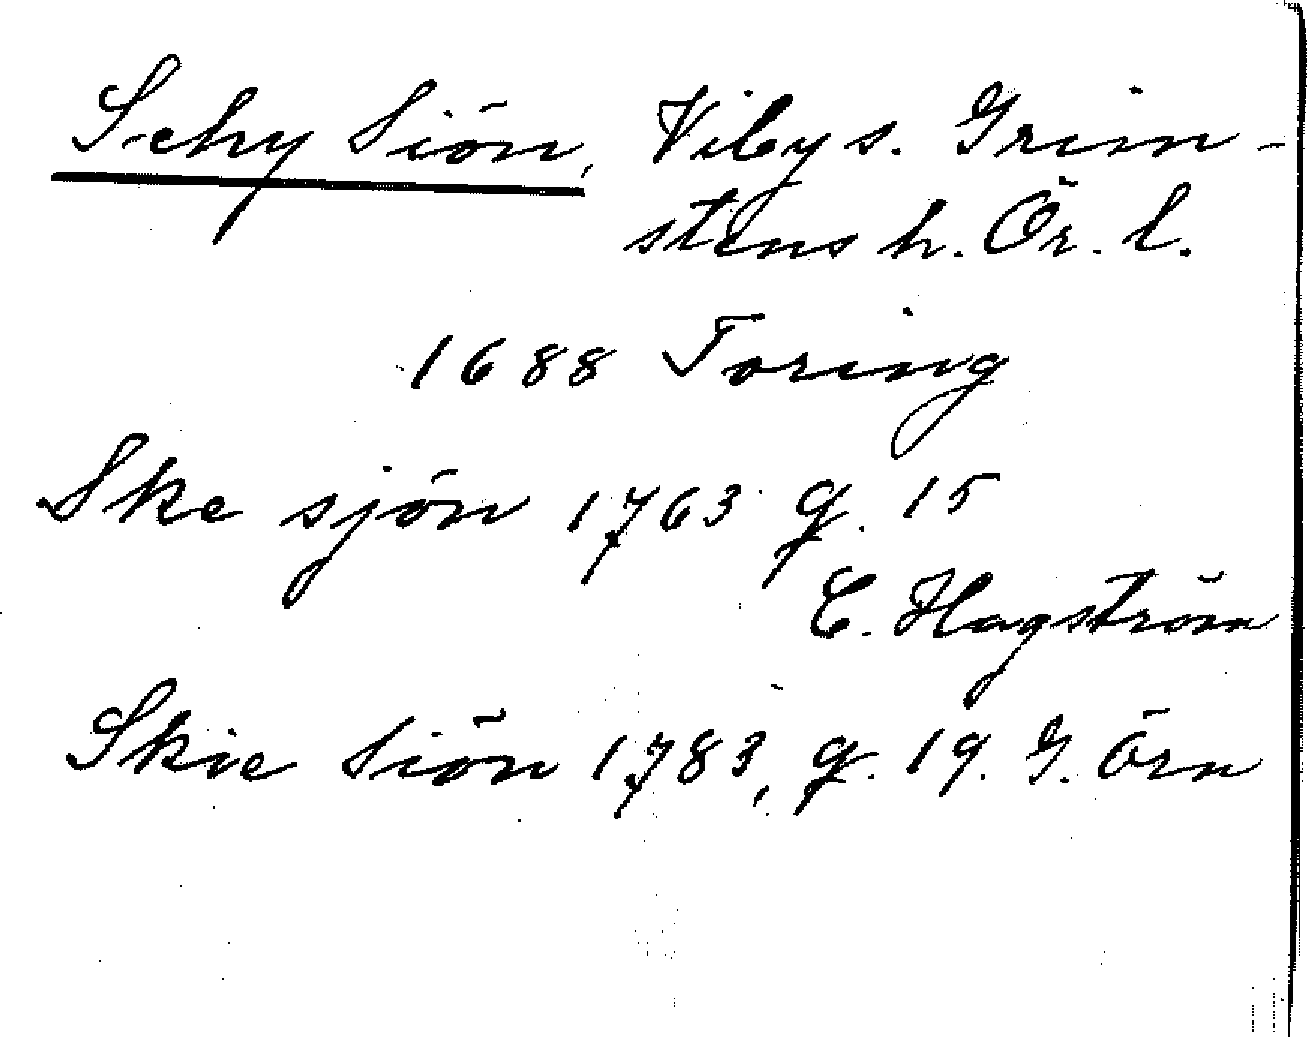 Schy Siön, Viby s. Grim-
stens h. Ör. l.
1688 Toring
Ske sjön 1763 g. 15
C. Hagström
Skie Siön 1783, g. 19. G. Örn